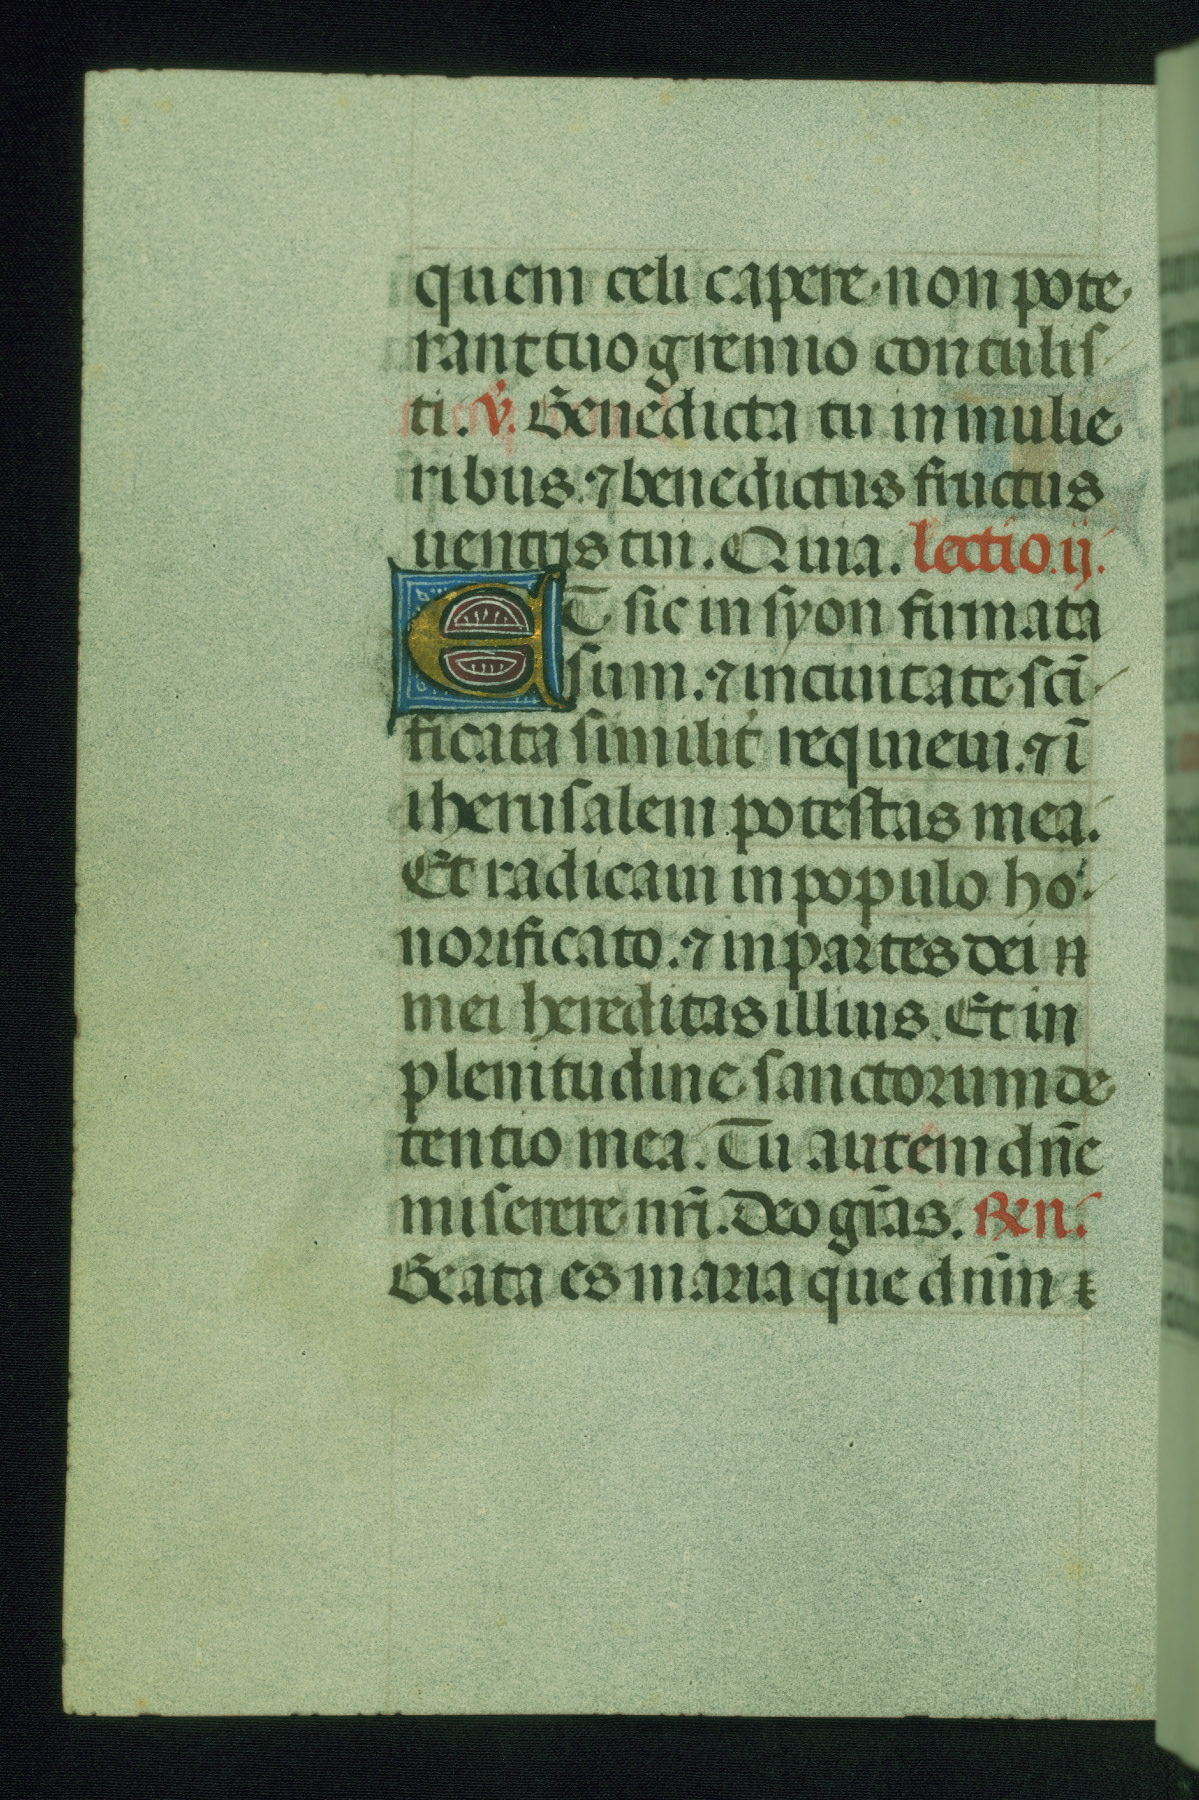 quem celi capere non pote
rant tuo gremio contulis
ti. v̄. Benedicta tu in mulie
ribus. ⁊ benedictus fructus
uentris tui. Quia. lectio. ij.
ET sic in syon firmata
sum. ⁊ in ciuitate scī
ficata similit̄ requieui. ⁊ ī
iherusalem potestas mea.
Et radicaui in populo ho
norificato. ⁊ in partes dei
mei hereditas illius. Et in
plenitudine sanctorum de
tentio mea. Tu autem dn̄e
miserere nr̄i. Deo gr̄as. Ren.
Beata es maria que dn̄m